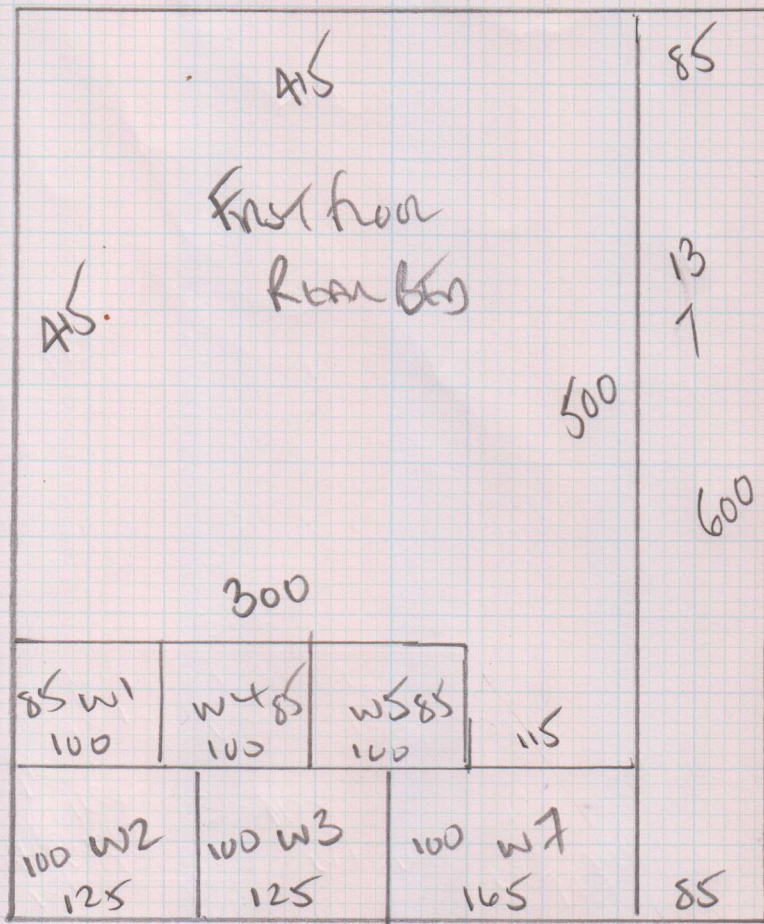 415
85
First floor
Rear Bed
13
7
415
500
600
300
85 W1
100
W4 85
100
W5 85
100
115
100 W2
125
100 W3
125
100 W7
165
85